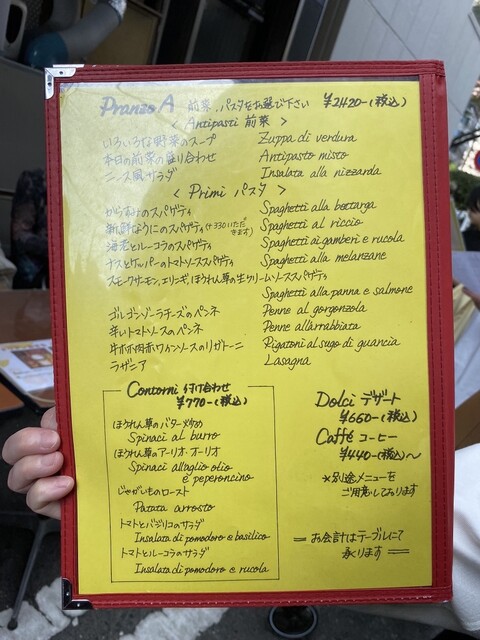 Pranzo A 前菜、パスタをお選び下さい ¥2420-(税込)
< Antipasti 前菜 >
いろいろな野菜のスープ Zuppa di verdura
本日の前菜の盛り合わせ Antipasto misto
ニース風サラダ Insalata alla nizzarda
< Primi パスタ >
からすみのスパゲティ Spaghetti alla bottarga
新鮮なうにのスパゲティ(+330いただきます) Spaghetti al riccio
海老とルーコラのスパゲティ Spaghetti ai gamberi e rucola
ナスとケッパーのトマトソーススパゲティ Spaghetti alla melanzane
スモークサーモン、エリンギ、ほうれん草の生クリームソーススパゲティ
Spaghetti alla panna e salmone
ゴルゴンゾーラチーズのペンネ Penne al gorgonzola
辛いトマトソースのペンネ Penne all'arrabbiata
牛ホホ肉赤ワインソースのリガトーニ Rigatoni al sugo di guancia
ラザニア Lasagna
Contorni 付け合わせ
¥770-(税込)
ほうれん草のバター炒め
Spinaci al burro
ほうれん草のアーリオ オーリオ
Spinaci all'aglio olio
e peperoncino
じゃがいものロースト
Patata arrosto
トマトとバジリコのサラダ
Insalata di pomodoro e basilico
トマトとルーコラのサラダ
Insalata di pomodoro e rucola
Dolci デザート
¥660-(税込)
Caffé コーヒー
¥440-(税込)~
*別途メニューを
ご用意しております
= お会計はテーブルにて
承ります =